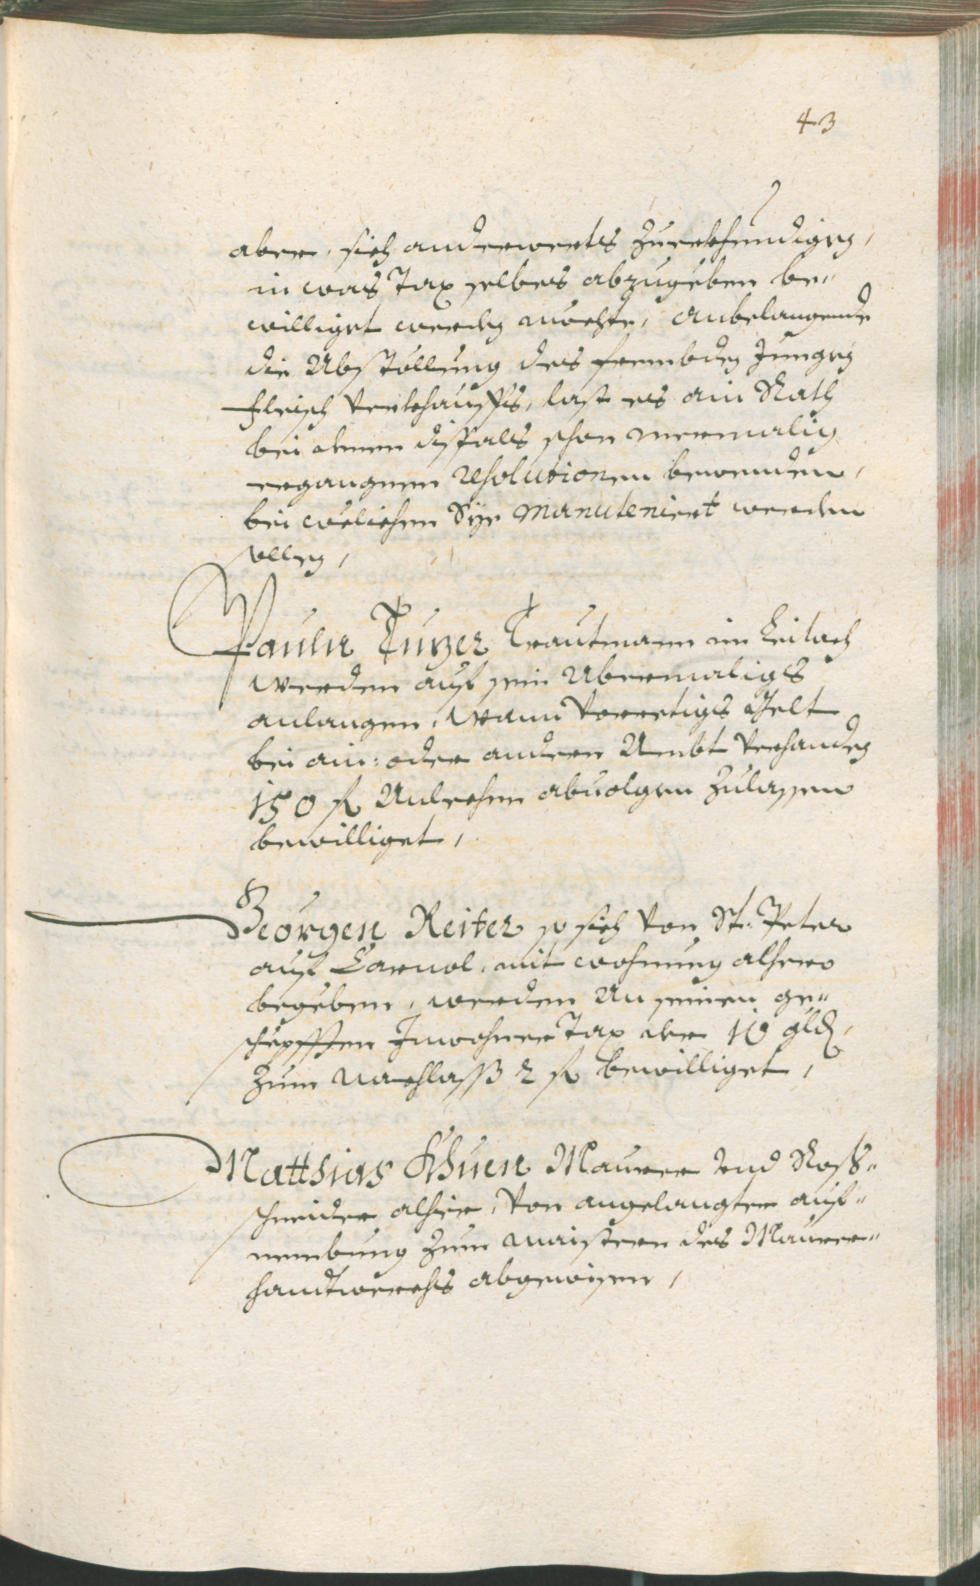 43
aber, sich anderwerts zuerkhundigen,
in was Tax selbes abzugeben be„
williget werden mechte, Anbelangende
die Abstöllung des frembden Jungen
Fleisch Verkhauffs, last es ain Rath
bei denen dißfals schon mermalig
ergangnen resolutionen bewenden,
bei welichen Sye manuteniert werden
sollen,
Pauln Tuzer Trautmann im Leitach
werden auf sein Abermaligs
anlangen, wann vorretigs Gelt
bei ain: oder andern Ambt verhanden
150 fl Anlechen abuolgen zulassen
bewilliget,
Georgen Reiter so sich von St. Peter
auf Carnol, mit wohnung alhero
begeben, werden An seinen ge„
schepfften Inwohner Tax der 10 gld,
zum Nachlaß 2 fl bewilliget,
Matthias Khuen Maurer vnd Roß„
schneider alhier, von angelangter auf„
nembung zum maistern des Maurer„
handtwerchs abgewisen,